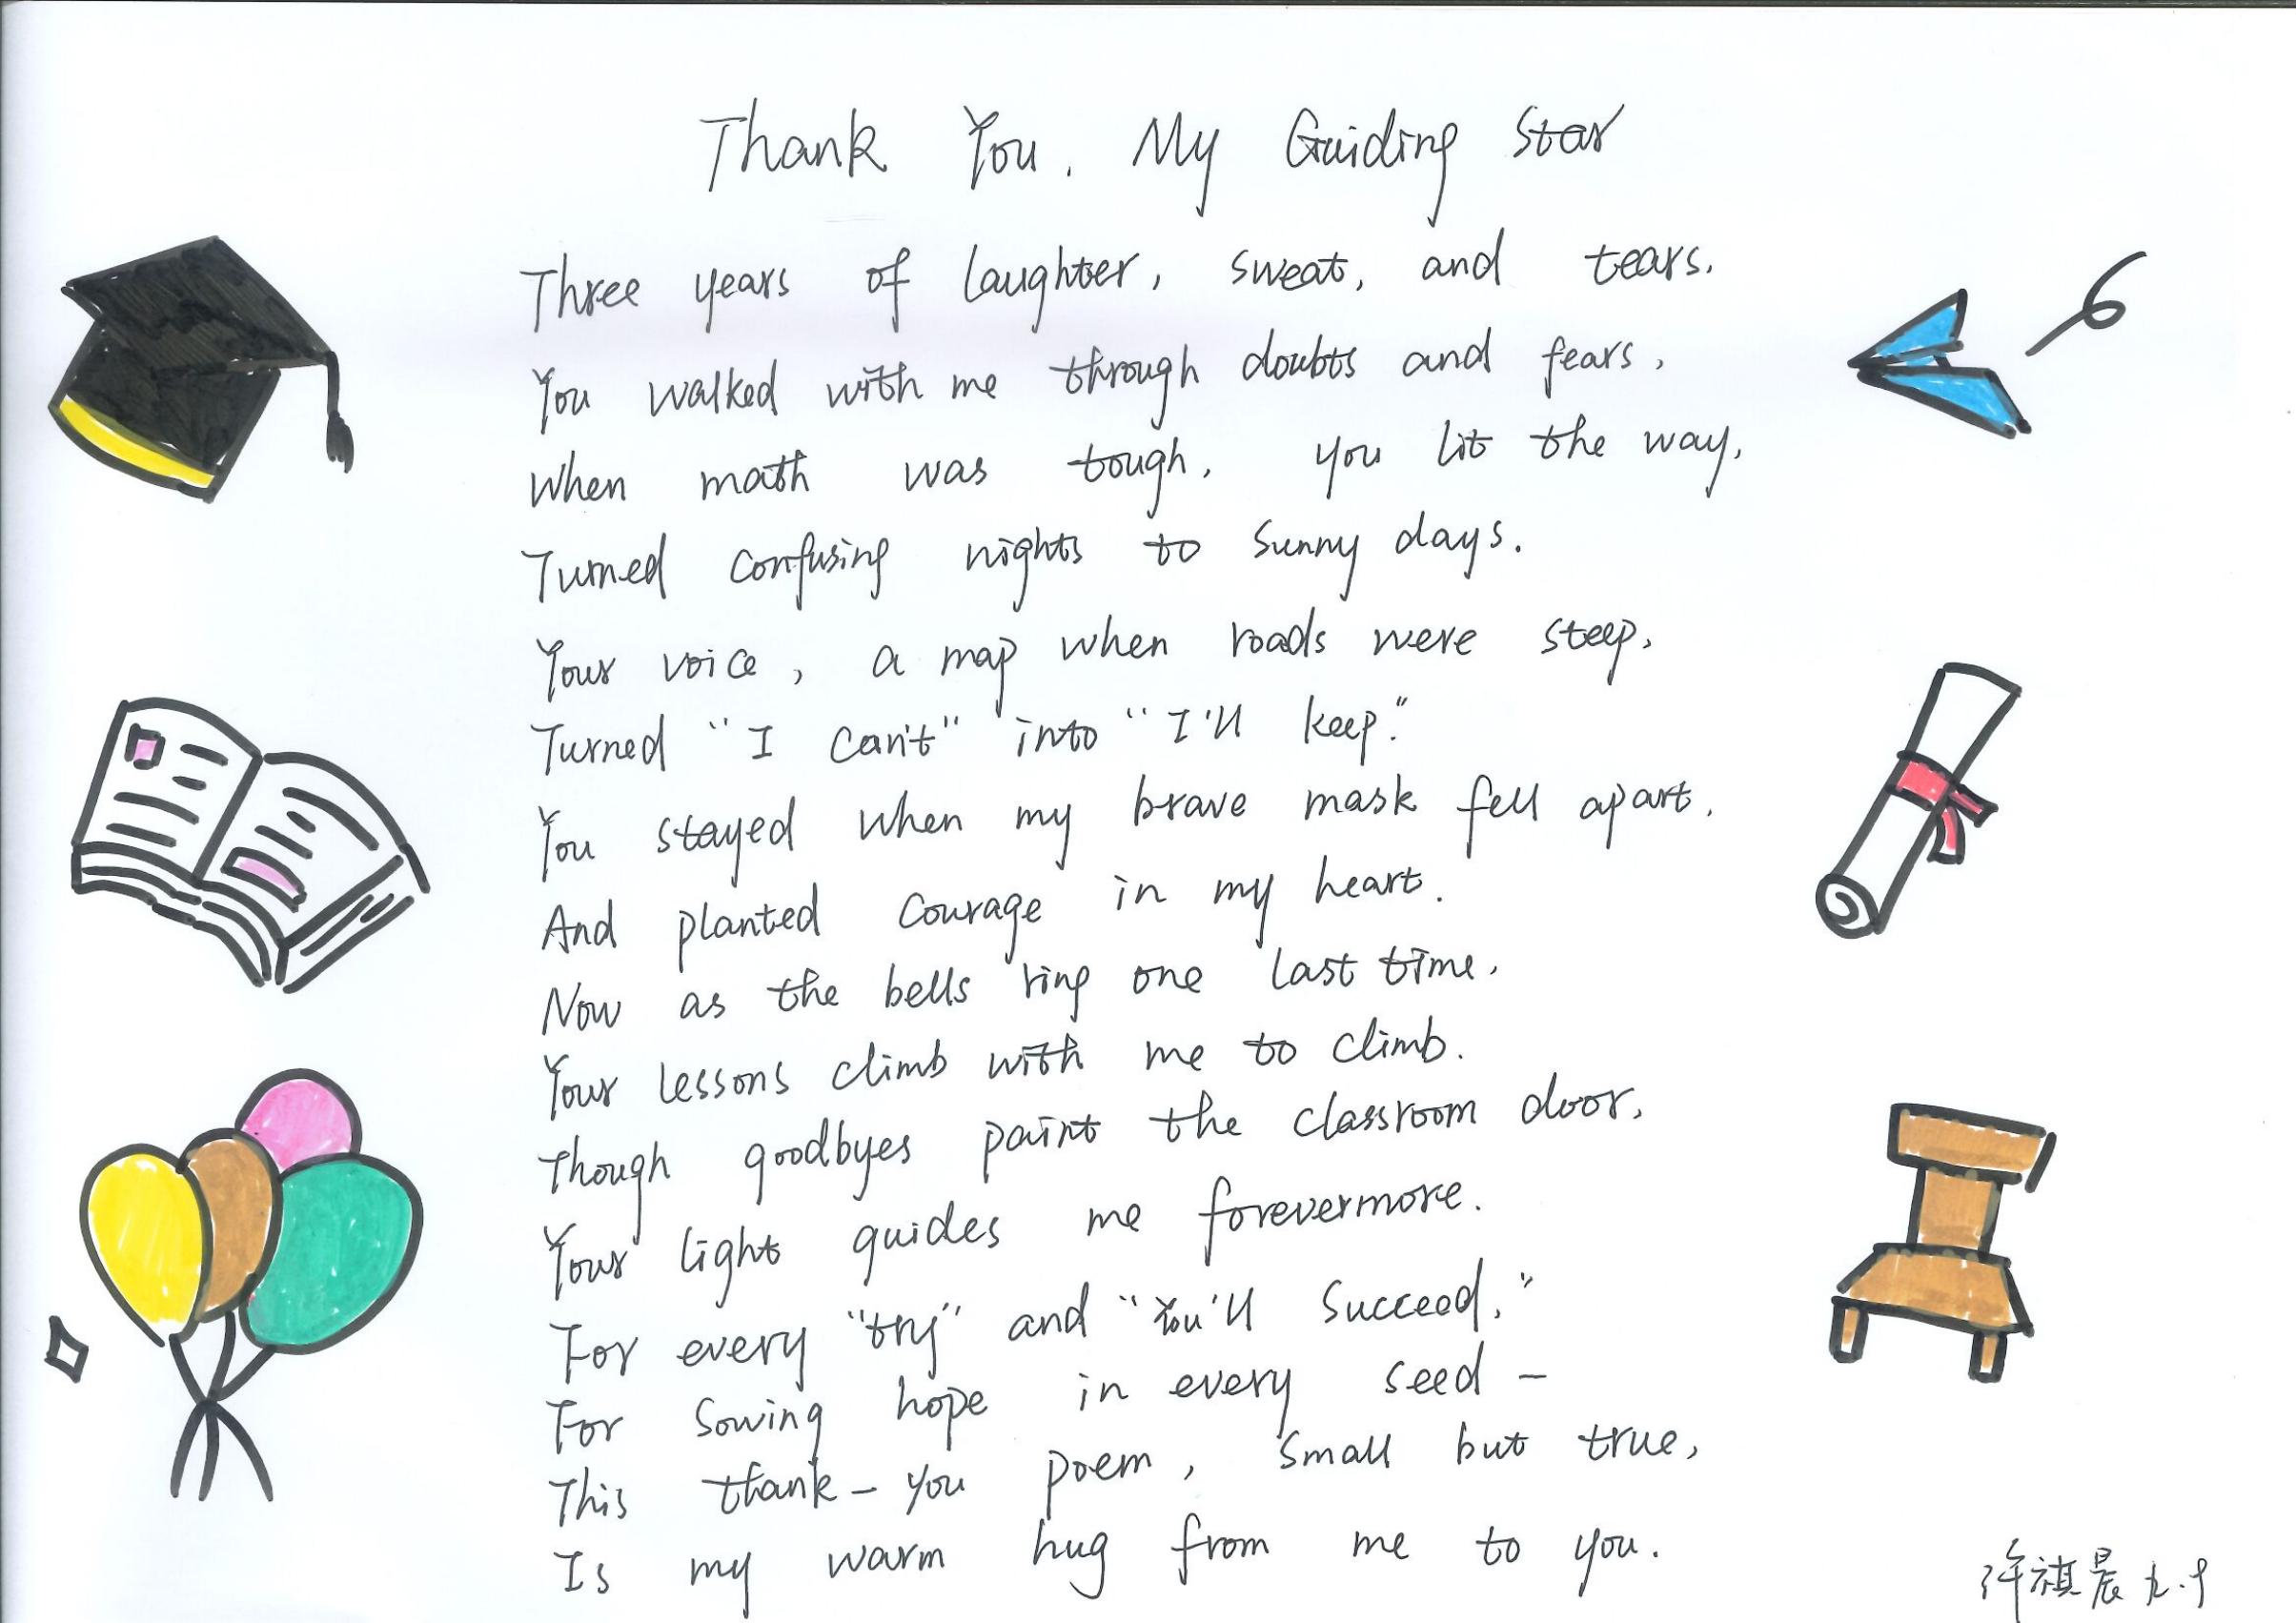 Thank You, My Guiding Star
Three years of laughter, sweat, and tears.
You walked with me through doubts and fears,
When math was tough, you lit the way,
Turned confusing nights to sunny days.
Your voice, a map when roads were steep,
Turned "I can't" into "I'll keep."
You stayed when my brave mask fell apart,
And planted courage in my heart.
Now as the bells ring one last time,
Your lessons climb with me to climb.
Though goodbyes paint the classroom door,
Your light guides me forevermore.
For every "try" and "You'll succeed,"
For sowing hope in every seed –
This thank-you poem, small but true,
Is my warm hug from me to you.
许祺晨 九.9